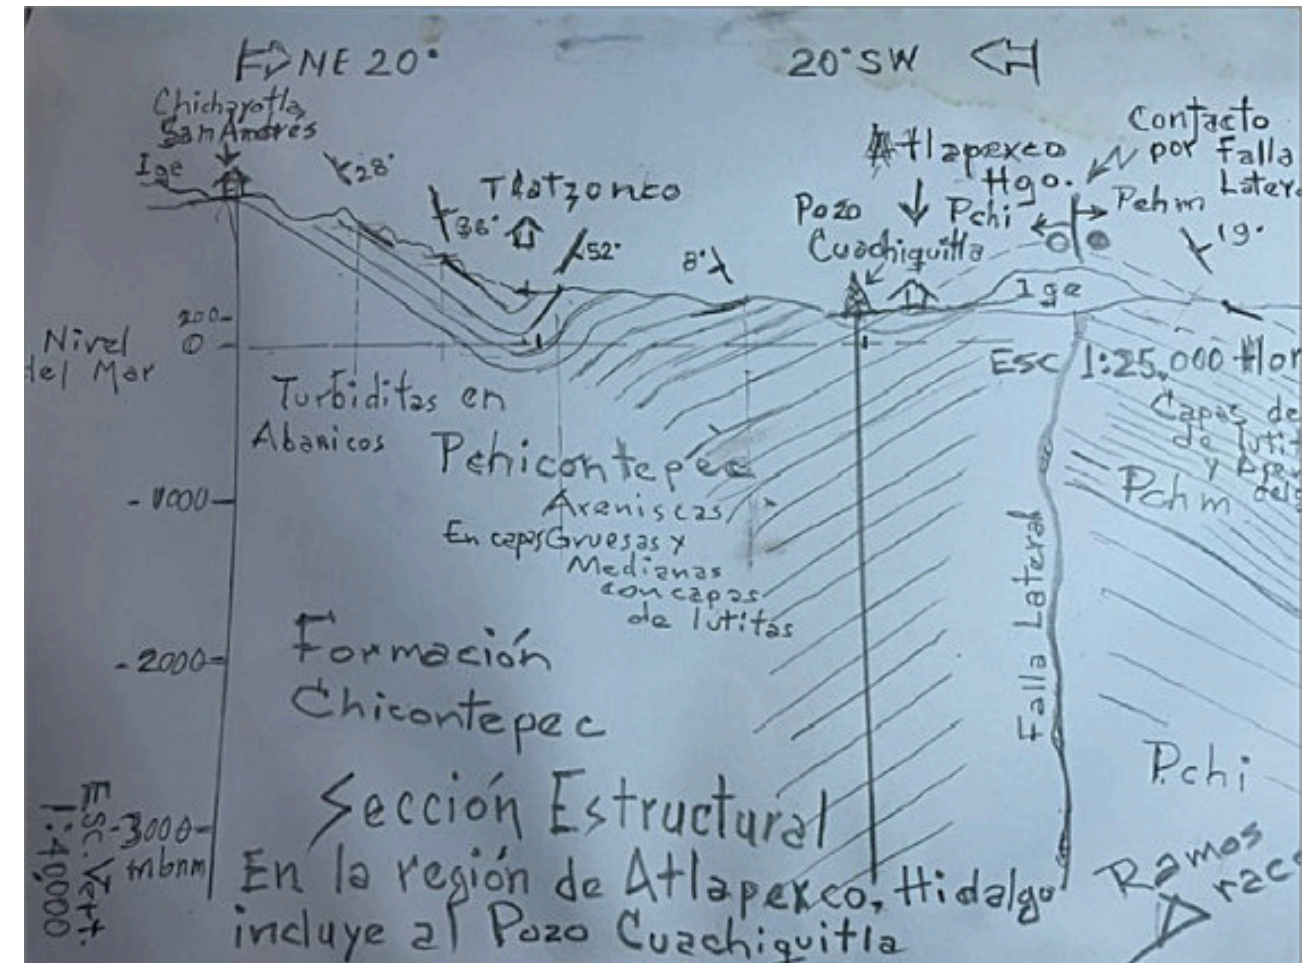 NE 20°
20° SW
Chichayotla,
San Andrés
Ige
28°
36°
Tlatzonco
52°
8°
Pozo
Cuachiquitla
Atlapexco
Hgo.
Pchi
Contacto
por Falla
Latera
Pchm
19°
Ige
200
0
Nivel
del Mar
Esc 1:25,000 Hor
Turbiditas en
Abanicos
Pchicontepec
Areniscas
En capas Gruesas y
Medianas
con capas
de lutitas
Capas de
de lutit
y Are
delg
Pchm
-1000
-2000
-3000
mbnm
Formación
Chicontepec
Falla Lateral
Pchi
Esc. Vert.
1:40000
Sección Estructural
En la región de Atlapexco, Hidalgo
incluye al Pozo Cuachiquitla
Ramos
rac